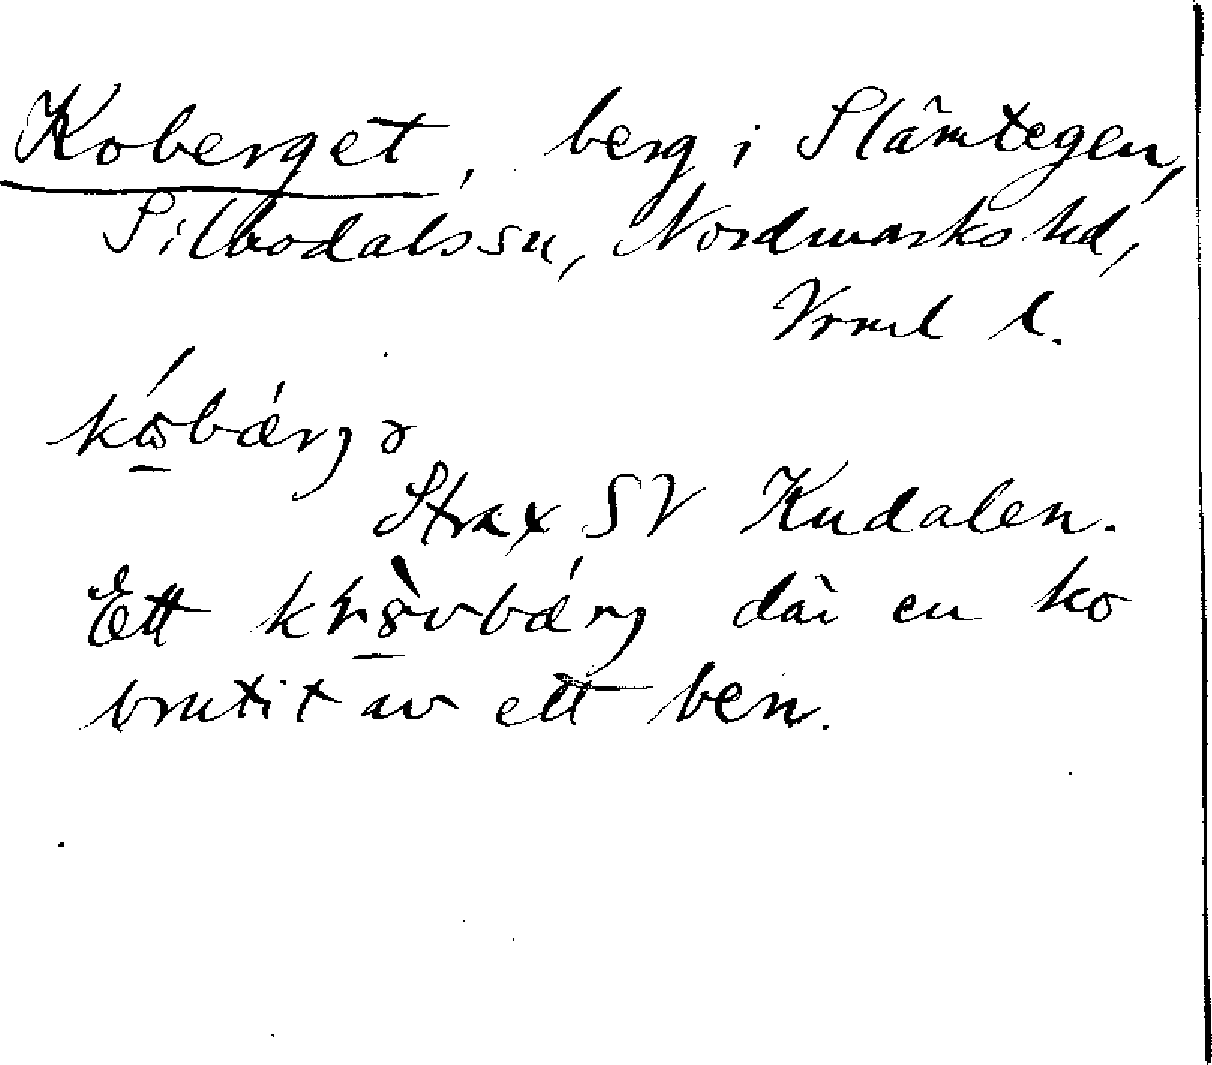 Koberget, berg i Slämtegen,
Silbodals sn, Nordmarks hd,
Vrml l.
kósbærjə
Strax SV Kudalen.
Ett bærj där en ko
brutit av ett ben.